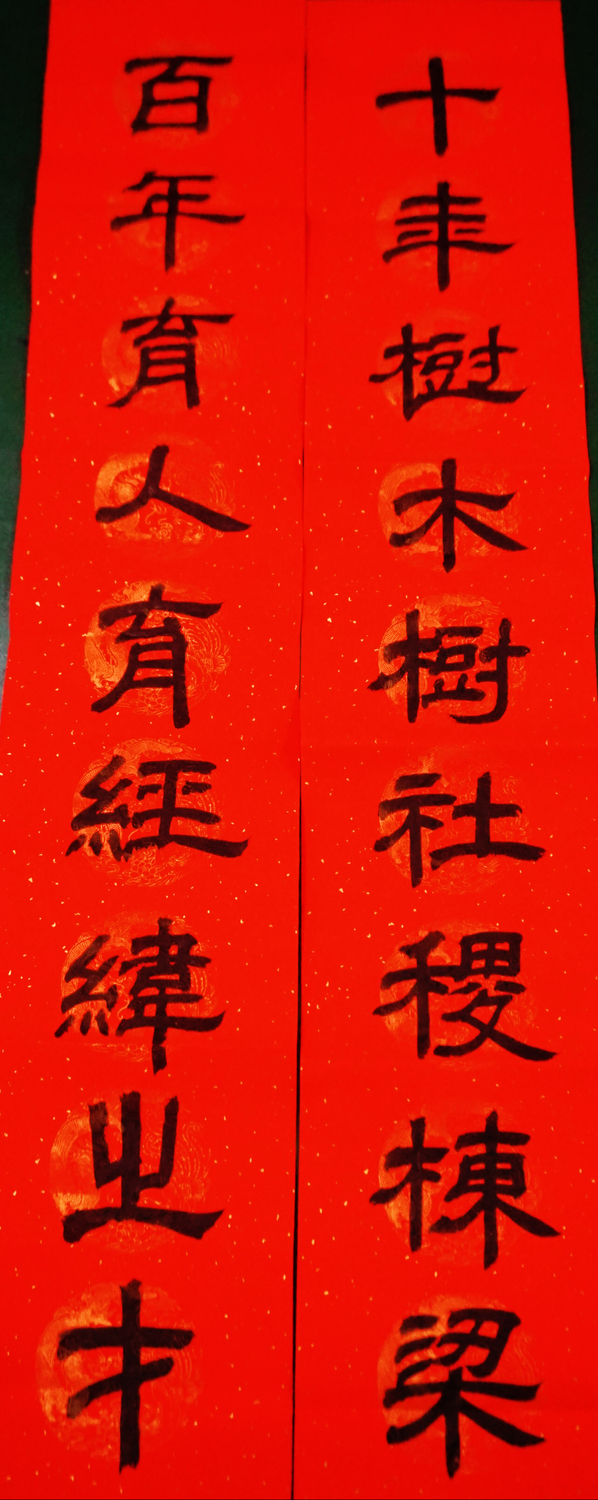 十年樹木樹社稷棟梁
百年育人育經緯之才